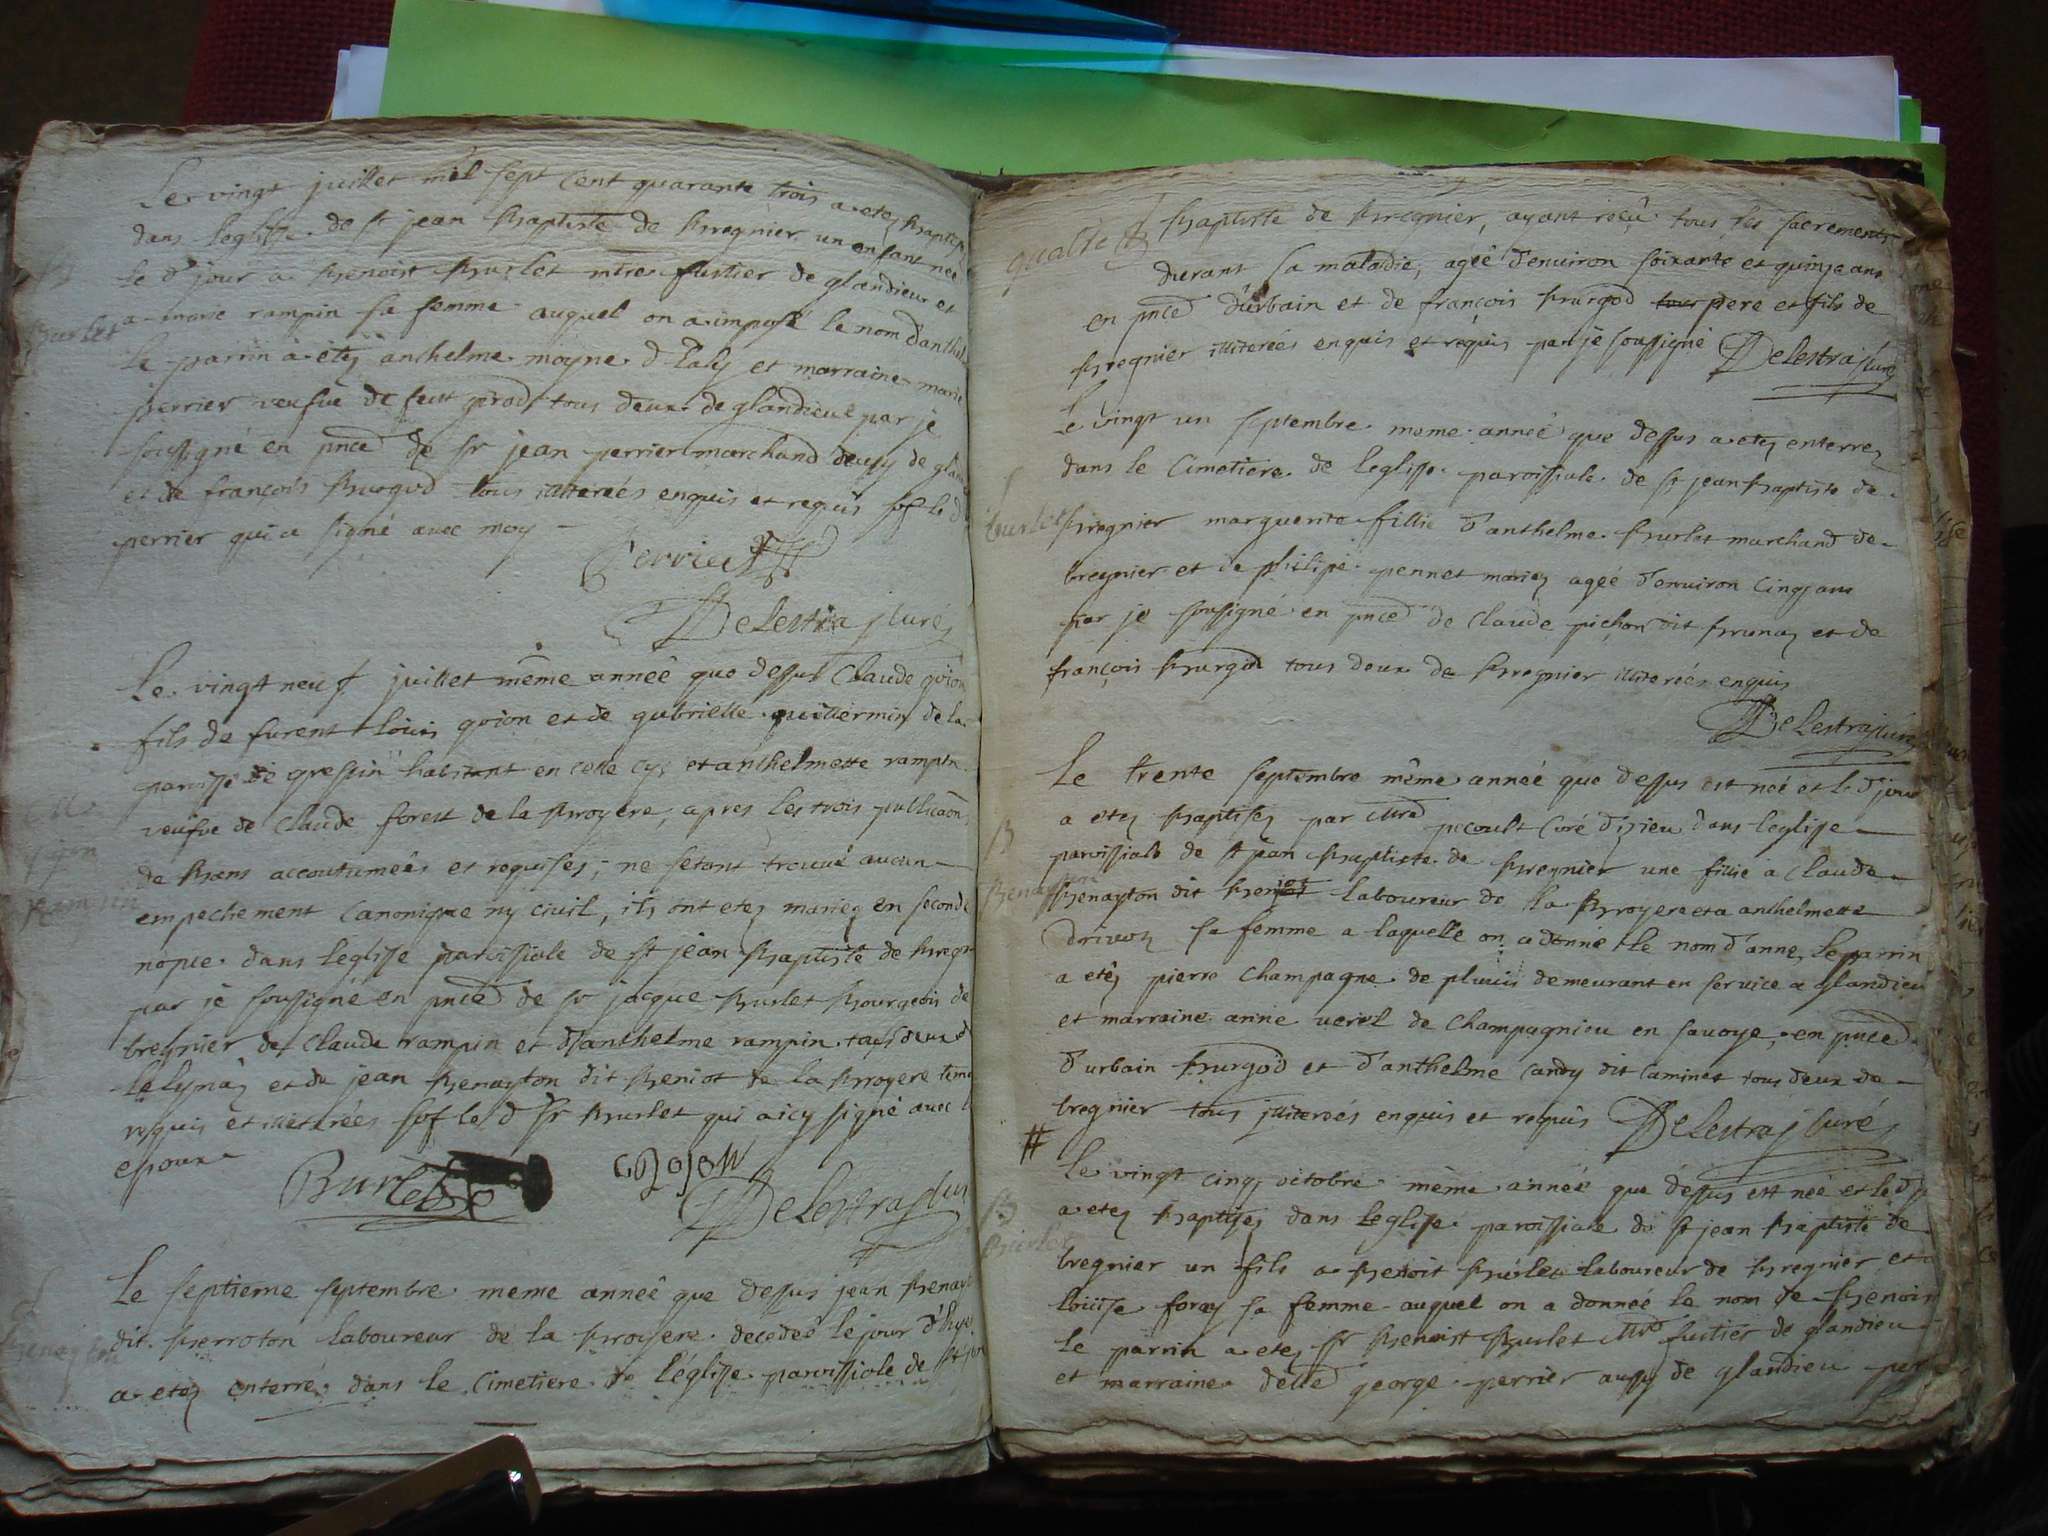 Le vingt juillet mil sept cent quarante trois a etez baptisé
dans leglisse de st jean Baptiste de Bregnier un enfant neé
le d jour a Benoist Burlet mtre fustier de glandieu et
a marie rampin sa femme auquel on a imposé le nom d'anthel
Burlet
le parrin a étez anthelme moyne et marraine marie
perrier veufue de feut girod tous deux de glandieu par je
soussigné en pnce de sr jean perrier marchand aussy de glan
et de françois Burgod tous illiterés enquis et requis sof le d
perrier qui a signé avec moy
Perrier
Delestra Curé
Le vingt neuf juillet même anneé que dessus Claude quion
fils de furent Louis quion et de gabrielle guillermin de la
paroisse de gressin habitant en cette cy et anthelmette rampin
veufue de Claude forest de la Broyere, apres les trois publicaôn
de Bans accoutumeés et requises, ne setant trouué aucun
rampin
empechement Canonique ny civil, ils ont etez mariez en seconde
nopce dans leglisse paroissiale de st jean Baptiste de Bregn
par je soussigné en pnce de sr jacque Burlet Bourgeois de
bregnier de Claude rampin et d'anthelme rampin tous deux d
et de jean Benayton dit Beniot de la Broyere tem
requis et illiterées sof le d sr Burlet qui a icy signé avec l
epoux
Burlet
Delestra Cur
Le septieme septembre meme anneé que dessus jean Benayt
dit Berroton laboureur de la Broyere decedeé le jour d'hyer
Benayton
a etez enterré dans le Cimetiere de léglisse paroissiale de st jean
quatre
Baptiste de Bregnier, ayant reçû tous les sacrements
durant sa maladie, ageé d'enuiron soixante et quinze ans
en pnce d'urbain et de françois Burgod pere et fils de
Bregnier illiterées enquis et requis par je soussigné Delestra Curé
Le vingt un septembre meme anneé que dessus a etez enterrez
dans le Cimetiere de leglisse paroissiale de st jean Baptiste de
Burlet
Bregnier marguerite fillie d'anthelme Burlet marchand de
bregnier et de philipe pennet mariez ageé d'enuiron cinq ans
par je soussigné en pnce de Claude pichon dit Brunaz et de
françois Burgod tous deux de Bregnier illiterées enquis
Delestra Curé
Le trente septembre même anneé que dessus est neé et le d jour
a etez Baptisez par Mre pecoult Curé d'izieu dans leglisse
B
paroissiale de st jean Baptiste de Bregnier une fillie a Claude
Benayton
Benayton dit Beniot laboureur de la Broyere et a anthelmette
sa femme a laquelle on a donné le nom d'anne, Le parrin
a etéz pierre Champagne de demeurant en service a glandieu
et marraine anne de Champagnieu en savoye, en pnce
d'urbain Burgod et d'anthelme Candy dit Caminet tous deux de
bregnier tous illiterées enquis et requis Delestra Curé
#
Le vingt cinq octobre même anneé que dessus est neé et le d j
B
a etez Baptisez dans leglisse paroissiale de st jean Baptiste de
Burlet
bregnier un fils a Benoit Burlet laboureur de Bregnier et a
Louise foray sa femme auquel on a donneé le nom de Benoit
Le parrin a etez sr Benoist Burlet Mre fustier de glandieu
et marraine delle george perrier aussy de glandieu par